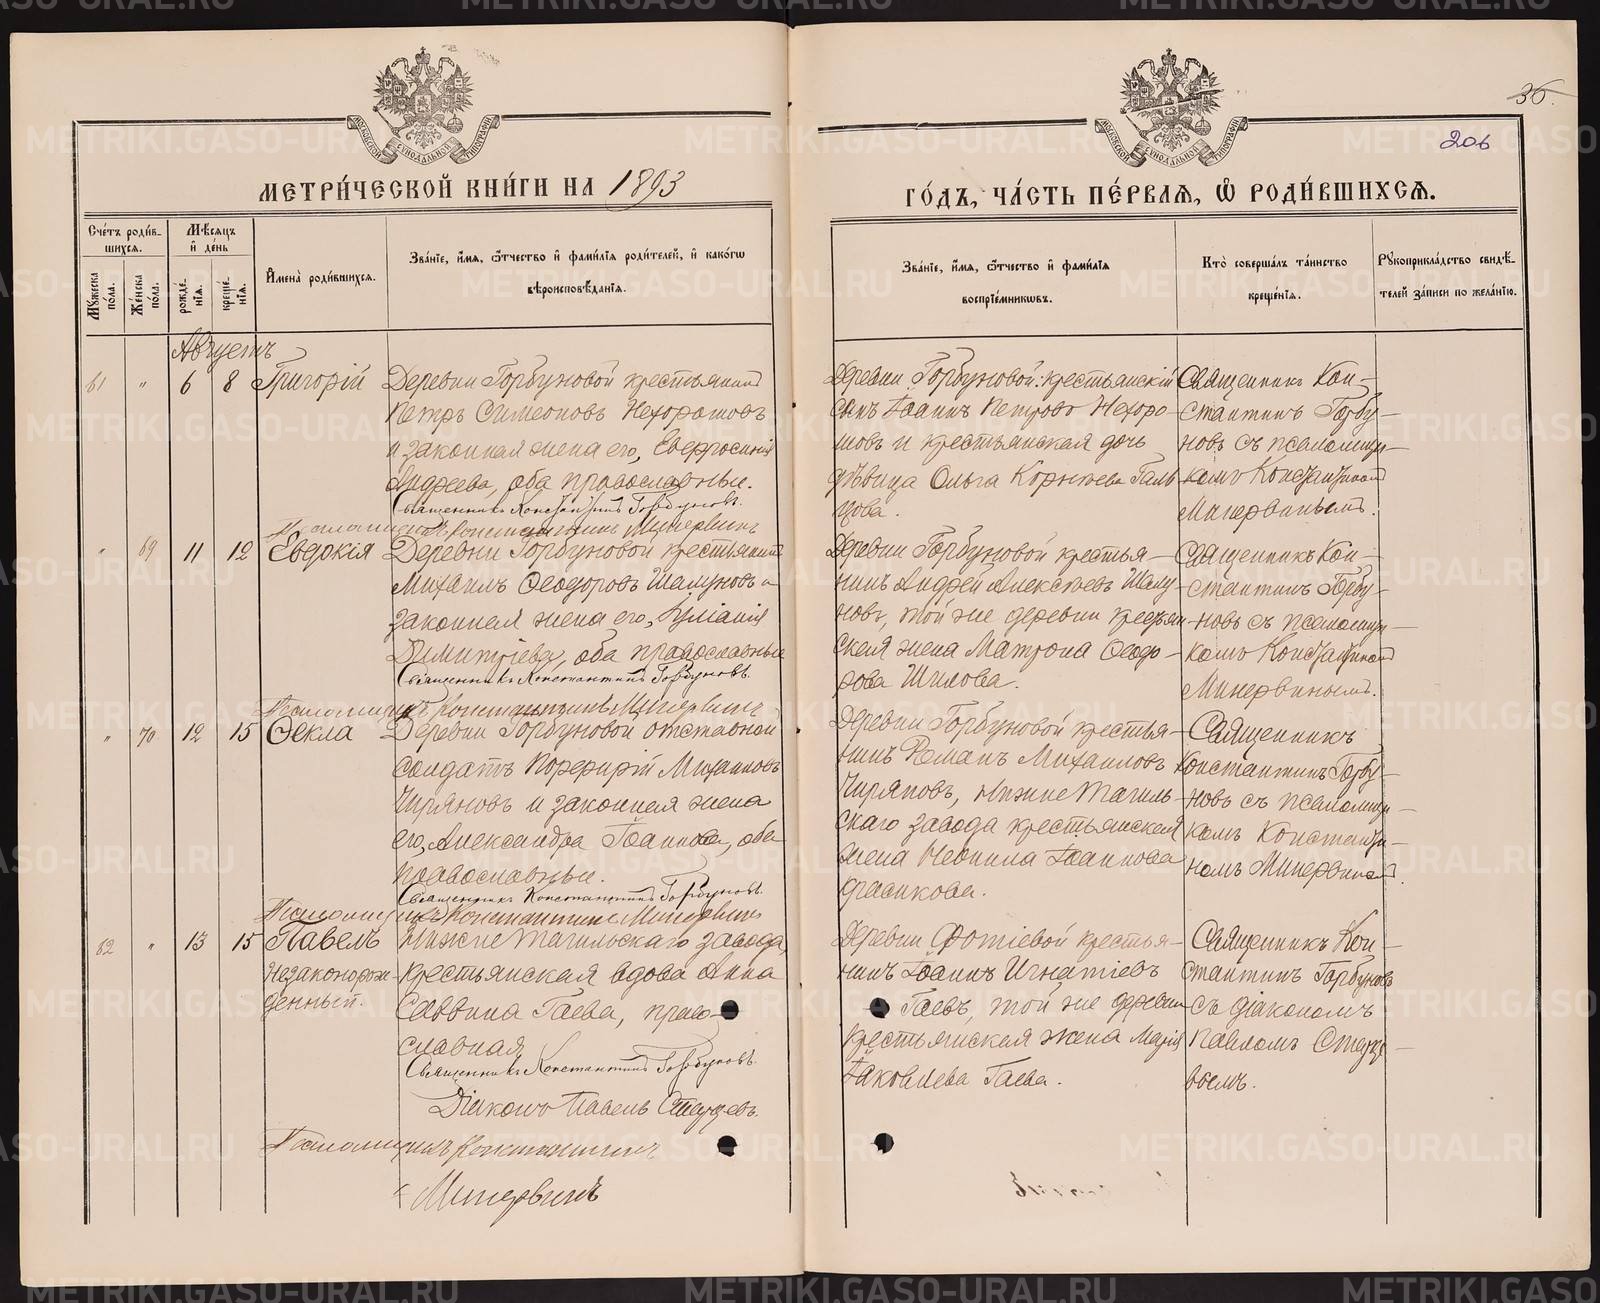 36.
206
МЕТРИ́ЧЕСКОЙ КНИ́ГИ НА 1893
ГО́ДЪ, ЧА́СТЬ ПЕ́РВАЯ, Ѽ РОДИ́ВШИХСЯ.
Сче́тъ роди́в-
шихся.
Мѣ́сяцъ
и҆ де́нь
И҆мена̀ роди́вшихся.
Зва́нїе, и҆́мя, ѻ҆́тчество и҆ фами́лїѧ роди́телей, и҆ како́гѡ
вѣроисповѣ́данїѧ.
Му́жеска по́ла.
Же́нска по́ла.
рожде́-
нїѧ.
креще́-
нїѧ.
Зва́нїе, и҆́мя, ѻ҆́тчество и҆ фами́лїѧ
воспрїе́мникѡвъ.
Кто̀ соверша́лъ та́инство
креще́нїѧ.
Рꙋкоприкла́дство свидѣ́-
телей за́писи по жела́нїю.
Августъ
61 " 6 8 Григорій
Деревни Горбуновой крестьянинъ
Петръ Симеоновъ Нехорошовъ
и законная жена его, Евфросинія
Андреева, оба православные.
Священникъ Константинъ Горбуновъ.
Псаломщикъ Константинъ Минервинъ
Деревни Горбуновой крестьянскій
сынъ Іоаннъ Петровъ Нехоро-
шовъ и крестьянская дочь
дѣвица Ольга
Священникъ Кон-
стантинъ Горбу-
новъ съ псаломщи-
комъ Константиномъ
Минервинымъ.
" 69 11 12 Евдокія
Деревни Горбуновой крестьянинъ
Михаилъ Ѳеодоровъ Шалуновъ и
законная жена его, Іуліанія
Димитріева, оба православные
Священникъ Константинъ Горбуновъ.
Псаломщикъ Константинъ Минервинъ
Деревни Горбуновой крестья-
нинъ Андрей Алексѣевъ Шалу-
новъ, той же деревни крестьян-
ская жена Матрона Ѳеодо-
рова Шилова.
Священникъ Кон-
стантинъ Горбу-
новъ съ псаломщи-
комъ Константиномъ
Минервинымъ.
" 70 12 15 Ѳекла
Деревни Горбуновой отставной
солдатъ Порфирій Михаиловъ
Чиряновъ и законная жена
его, Александра Іоаннова, оба
православные.
Священникъ Константинъ Горбуновъ.
Псаломщикъ Константинъ Минервинъ
Деревни Горбуновой крестья-
нинъ Романъ Михаиловъ
Чиряновъ, Нижне Тагиль-
скаго завода крестьянская
жена Неонила Іоаннова
Священникъ
Константинъ Горбу-
новъ съ псаломщи-
комъ Констант-
номъ Минервиным.
62 " 13 15 Павелъ
незаконорож-
денный.
Нижне Тагильскаго завода,
крестьянская вдова Анна
Саввина Гаева, право-
славная
Священникъ Константинъ Горбуновъ.
Діаконъ Павелъ Старцевъ.
Псаломщикъ Константинъ
Минервинъ
Деревни Фотіевой крестья-
нинъ Іоаннъ Игнатіевъ
Гаевъ, той же деревни
крестьянская жена Марія
Іаковлева Гаева.
Священникъ Кон-
стантинъ Горбуновъ
съ діакономъ
Павломъ Старце-
вымъ.
METRIKI.GASO-URAL.RU